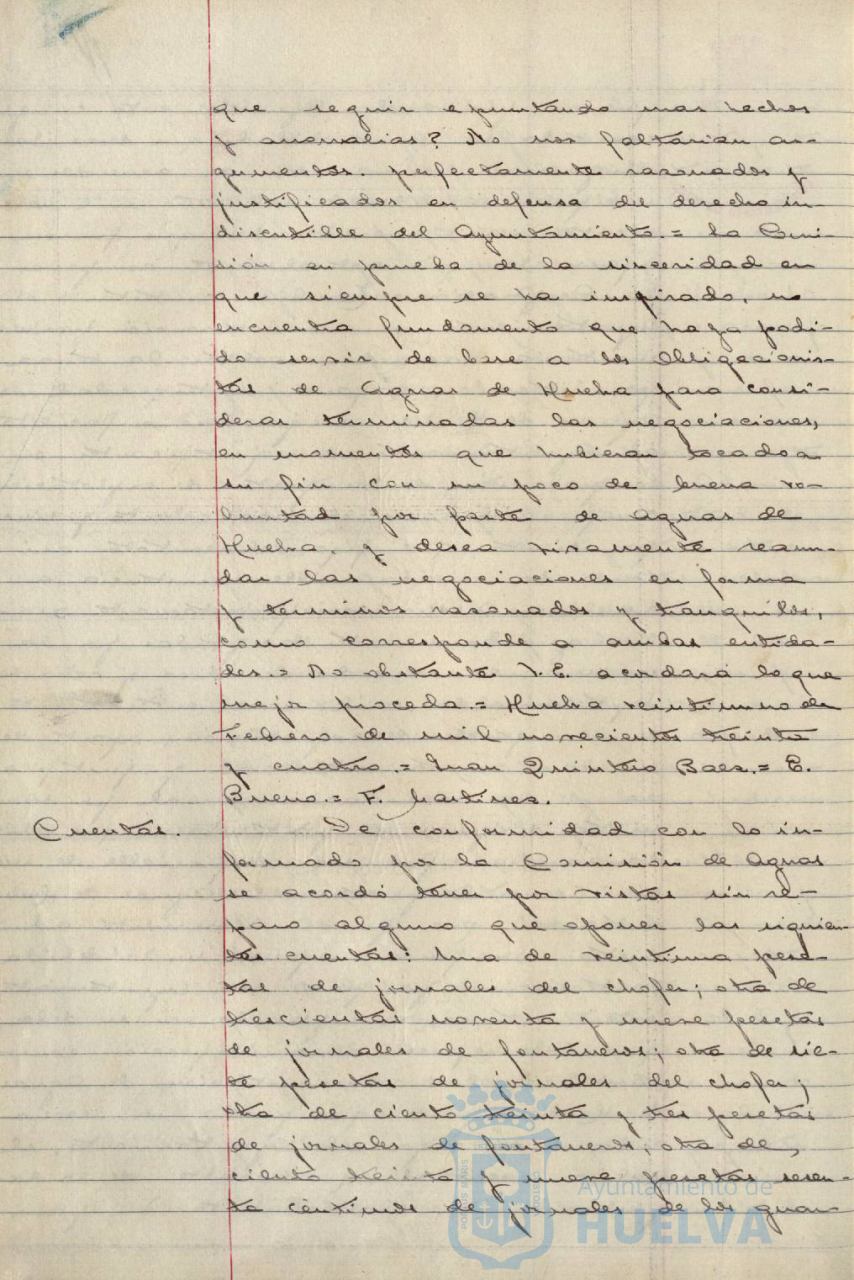 que seguir apuntando mas hechos
y anomalias? No nos faltarian ar-
gumentos. perfectamente razonados y
justificados en defensa del derecho in-
discutible del Ayuntamiento.= La Comi-
sión en prueba de la sinceridad en
que siempre se ha inspirado, no
encuentra fundamento que haya podi-
do servir de base a los Obligacionis-
tas de Aguas de Huelva para consi-
derar terminadas las negociaciones,
en momentos que hubieran tocado a
su fin con un poco de buena vo-
luntad por parte de Aguas de
Huelva, y desea vivamente reanu-
dar las negociaciones en forma
y terminos razonados y tranquilos,
como corresponde a ambas entida-
des.= No obstante V.E. acordará lo que
mejor proceda.= Huelva veintiuno de
Febrero de mil novecientos treinta
y cuatro.= Juan Quintero Baez.= E.
Bueno.= F. Martinez.
Cuentas. De conformidad con lo in-
formado por la Comisión de Aguas
se acordó tener por vistas sin re-
paro alguno que oponer las siguien-
tes cuentas: Una de veintiuna pese-
tas de jornales del chofer; otra de
trescientas noventa y nueve pesetas
de jornales de fontaneros; otra de sie-
te pesetas de jornales del chofer;
otra de ciento treinta y tres pesetas
de jornales de fontaneros; otra de
ciento treinta y nueve pesetas sesen-
ta céntimos de jornales de los guar-
Ayuntamiento de
HUELVA